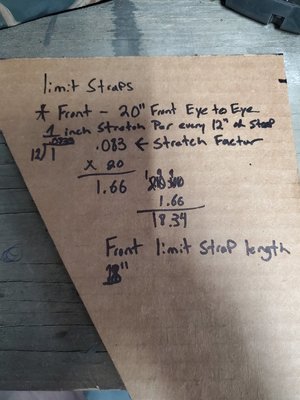 limit straps
* Front - 20" Front Eye to Eye
1 inch Stretch Per every 12" of Strap
12 1 .083 ← Stretch Factor
x 20
1.66
1.66
18.34
Front limit Strap length
18"